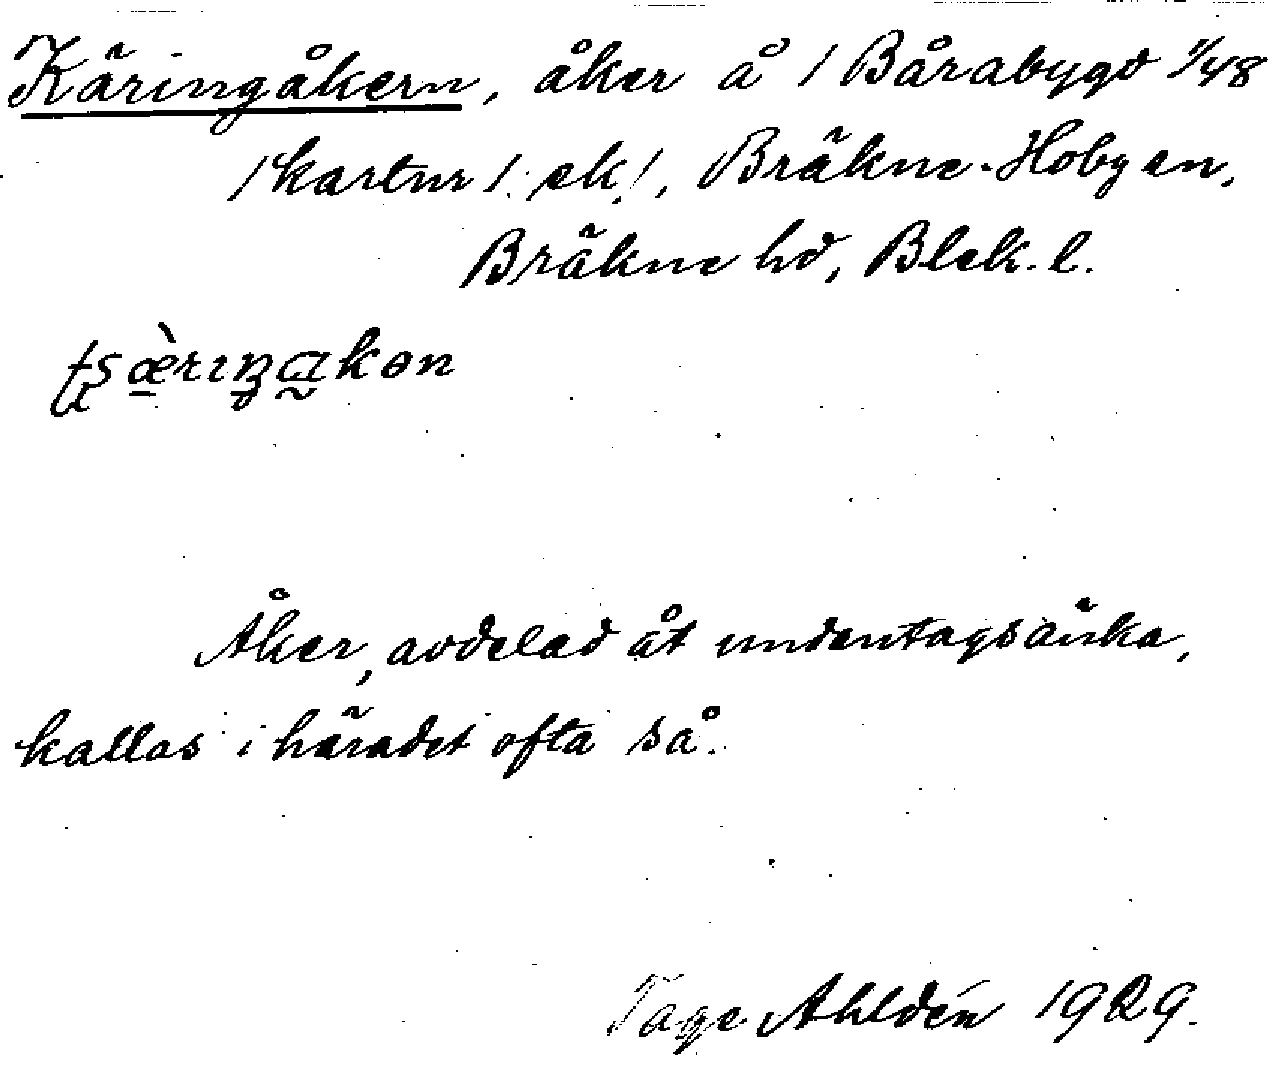 Käringåkern, åker å 1 Bårabygd 1/48
/kartnr 1. ek./, Bräkne-Hoby sn,
Bräkne hd, Blek. l.
Åker, avdelad åt undantagsänka,
kallas i häradet ofta så.
Tage Ahldén 1929.